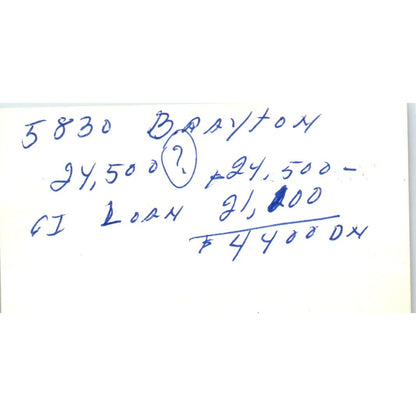 5830 BRAYTON
24,500 ? $24,500 -
GI LOAN 21,100
$4400 DN